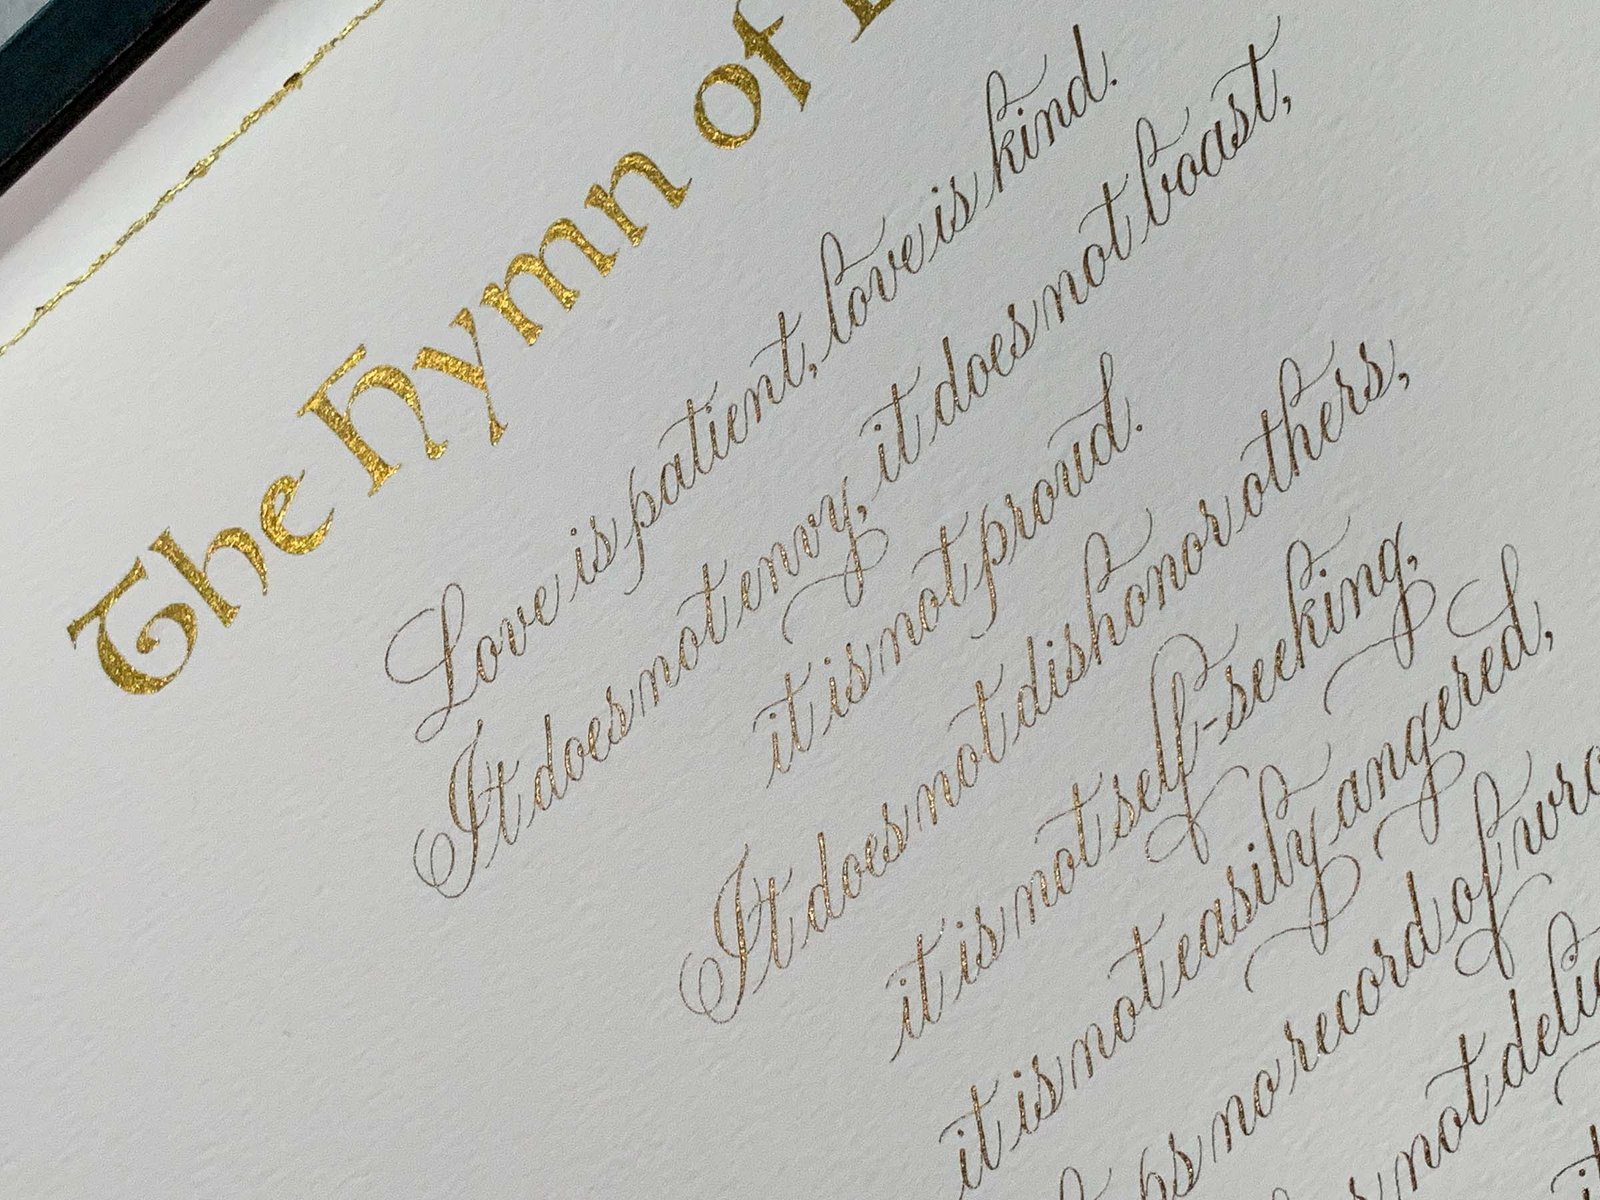 The Hymn of
Love is patient, love is kind.
It does not envy, it does not boast,
it is not proud.
It does not dishonor others,
it is not self-seeking,
it is not easily angered,
no record of
not